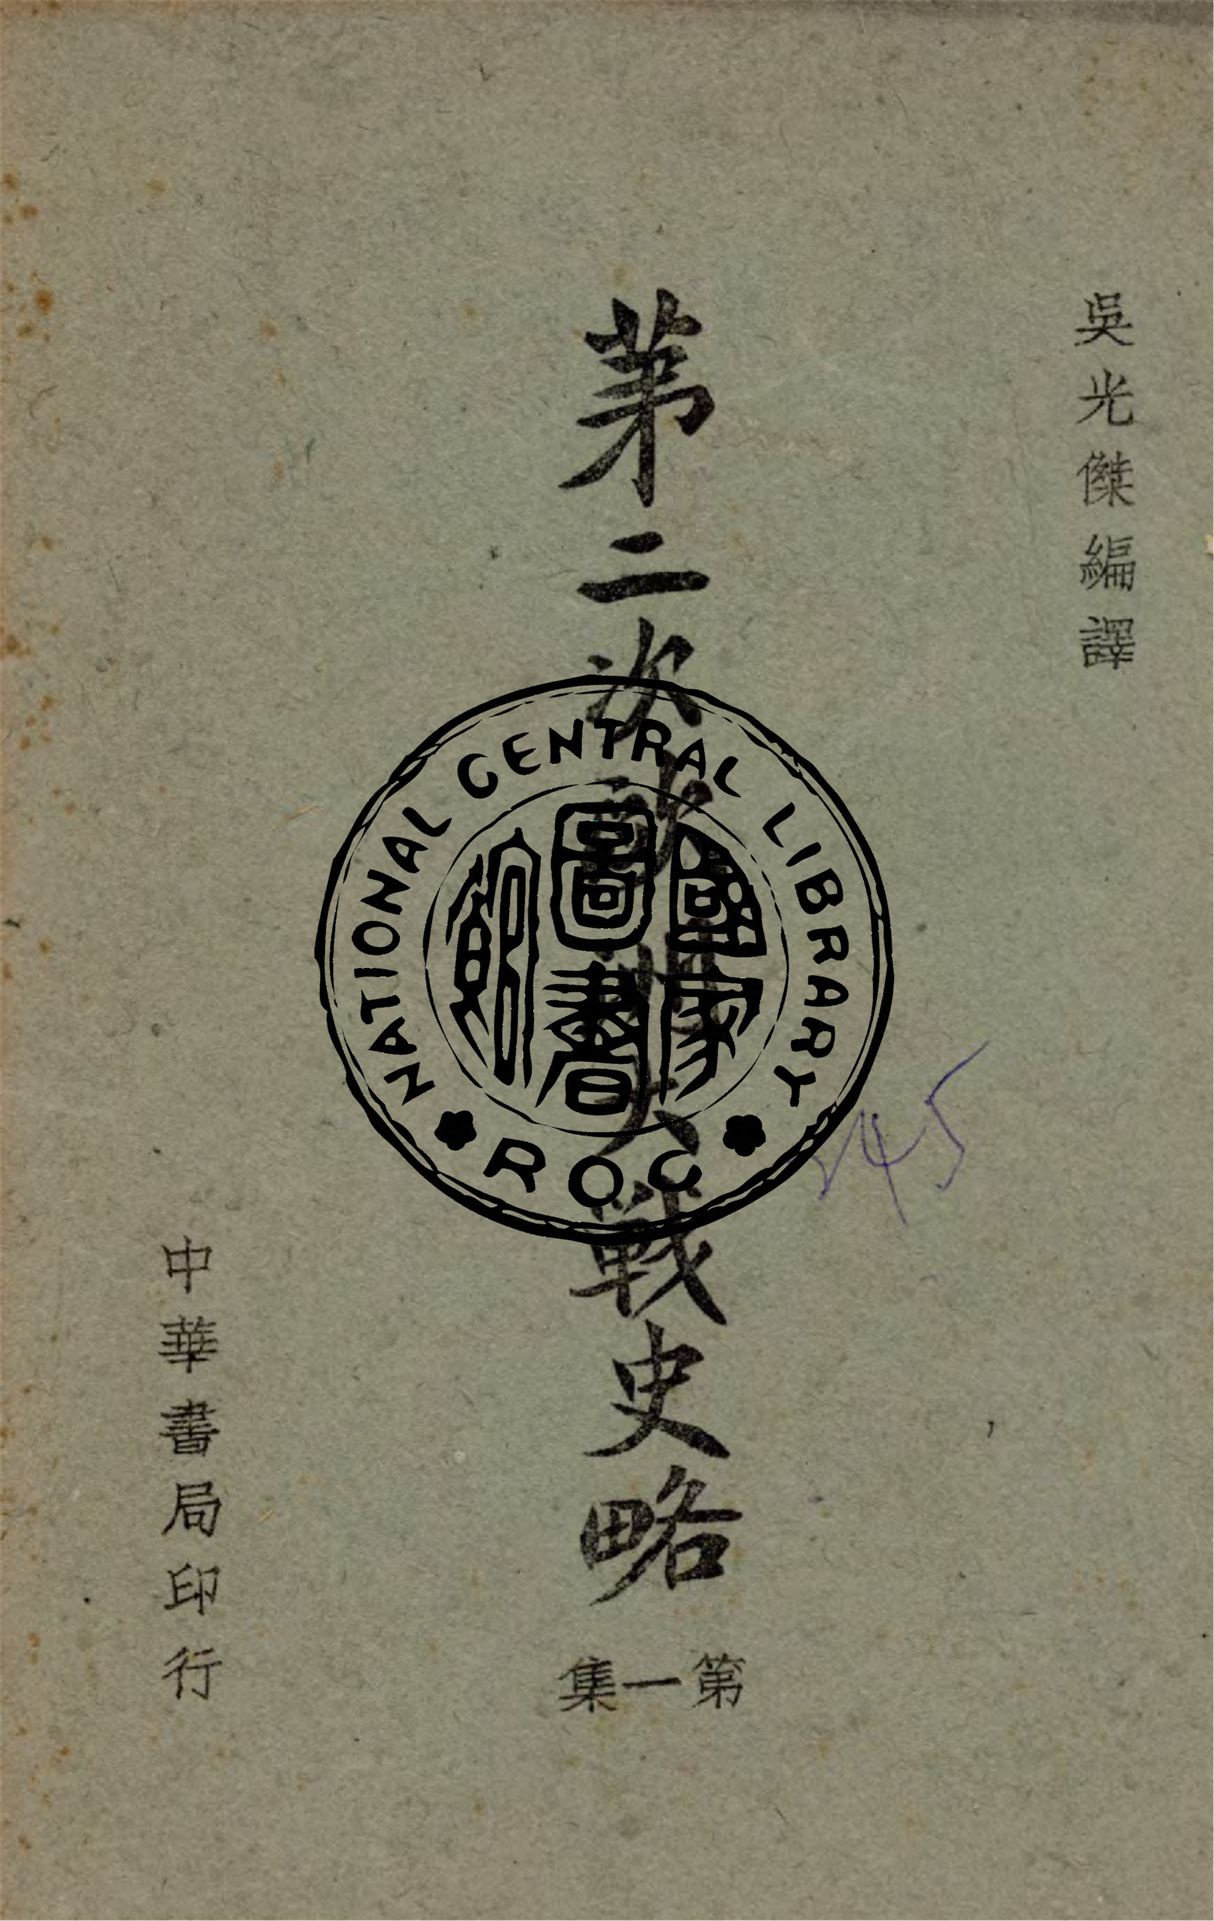 吳光傑編譯
第二次歐洲大戰史略
第一集
中華書局印行
NATIONAL CENTRAL LIBRARY
ROC
國家圖書館
245